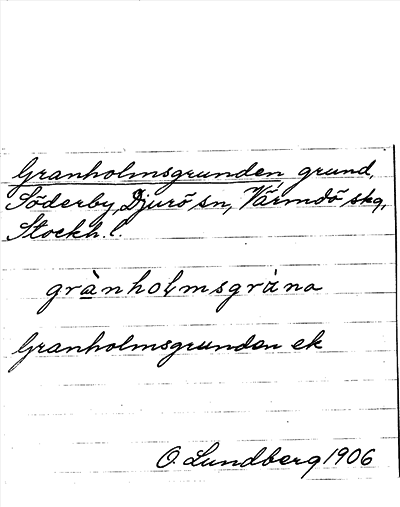 Granholmsgrunden grund,
Söderby, Djurö sn, Värmdö skg,
Stockh. l.
grànholmsgrùna
Granholmsgrunden ek
O. Lundberg 1906